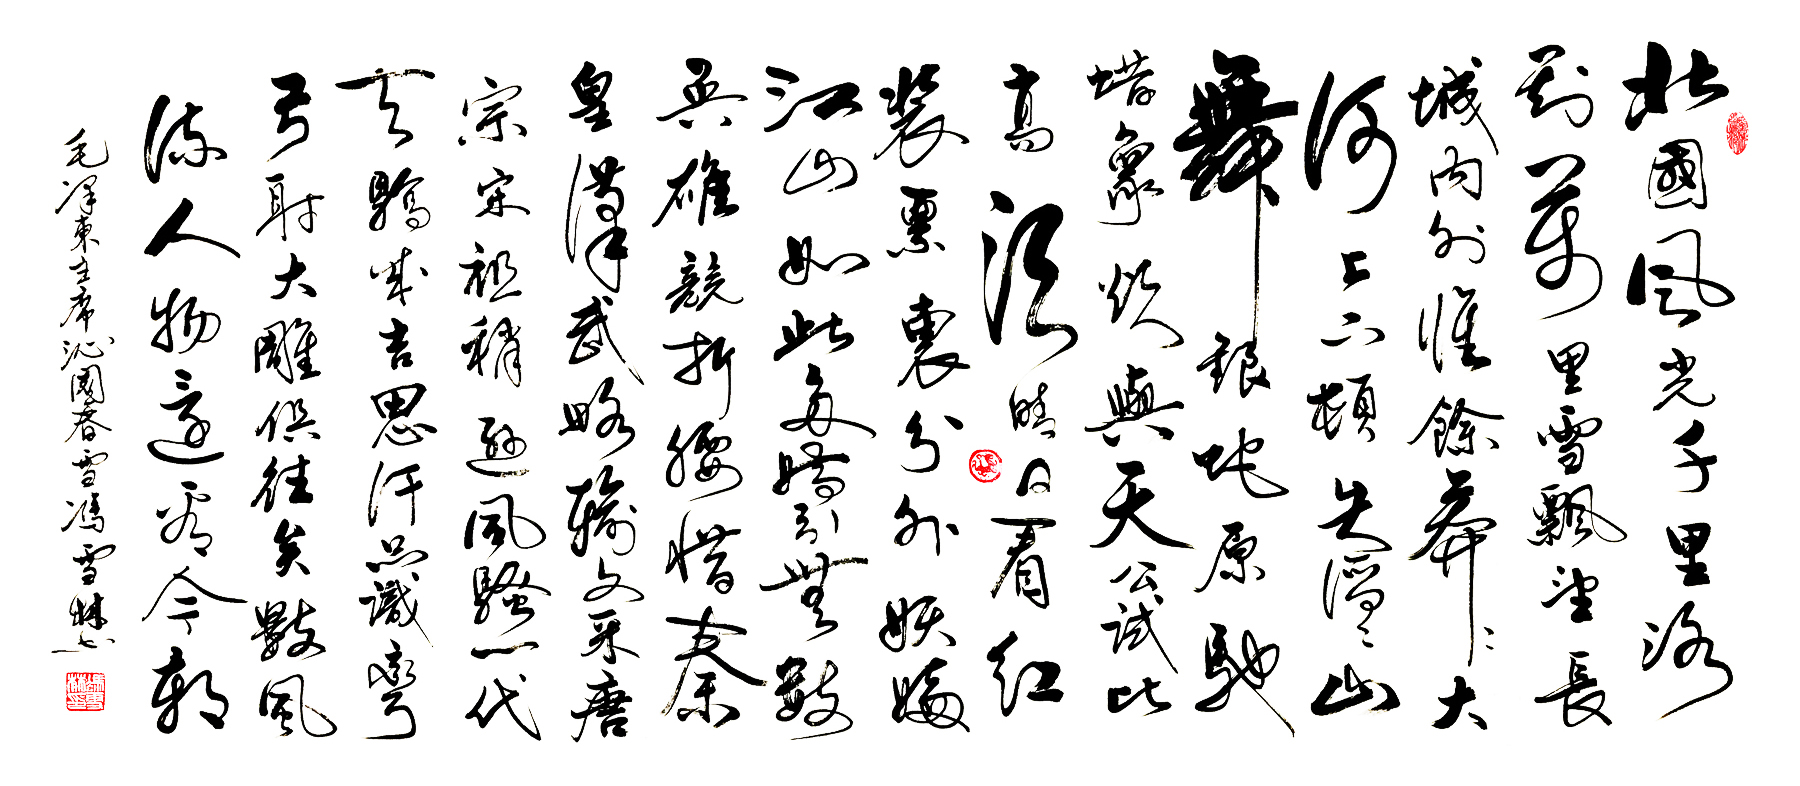 北國风光千里冰
封萬里雪飄望長
城内外惟餘莽〻大
河上下頓失滔〻山
舞銀蛇原馳
蜡象欲與天公試比
高須晴日看紅
裝素裹分外妖嬈
江山如此多嬌引無數
英雄競折腰惜秦
皇漢武略輸文采唐
宗宋祖稍遜風騷一代
天驕成吉思汗只識彎
弓射大雕俱往矣數風
流人物還看今朝
毛澤東主席沁園春雪馮雪林书